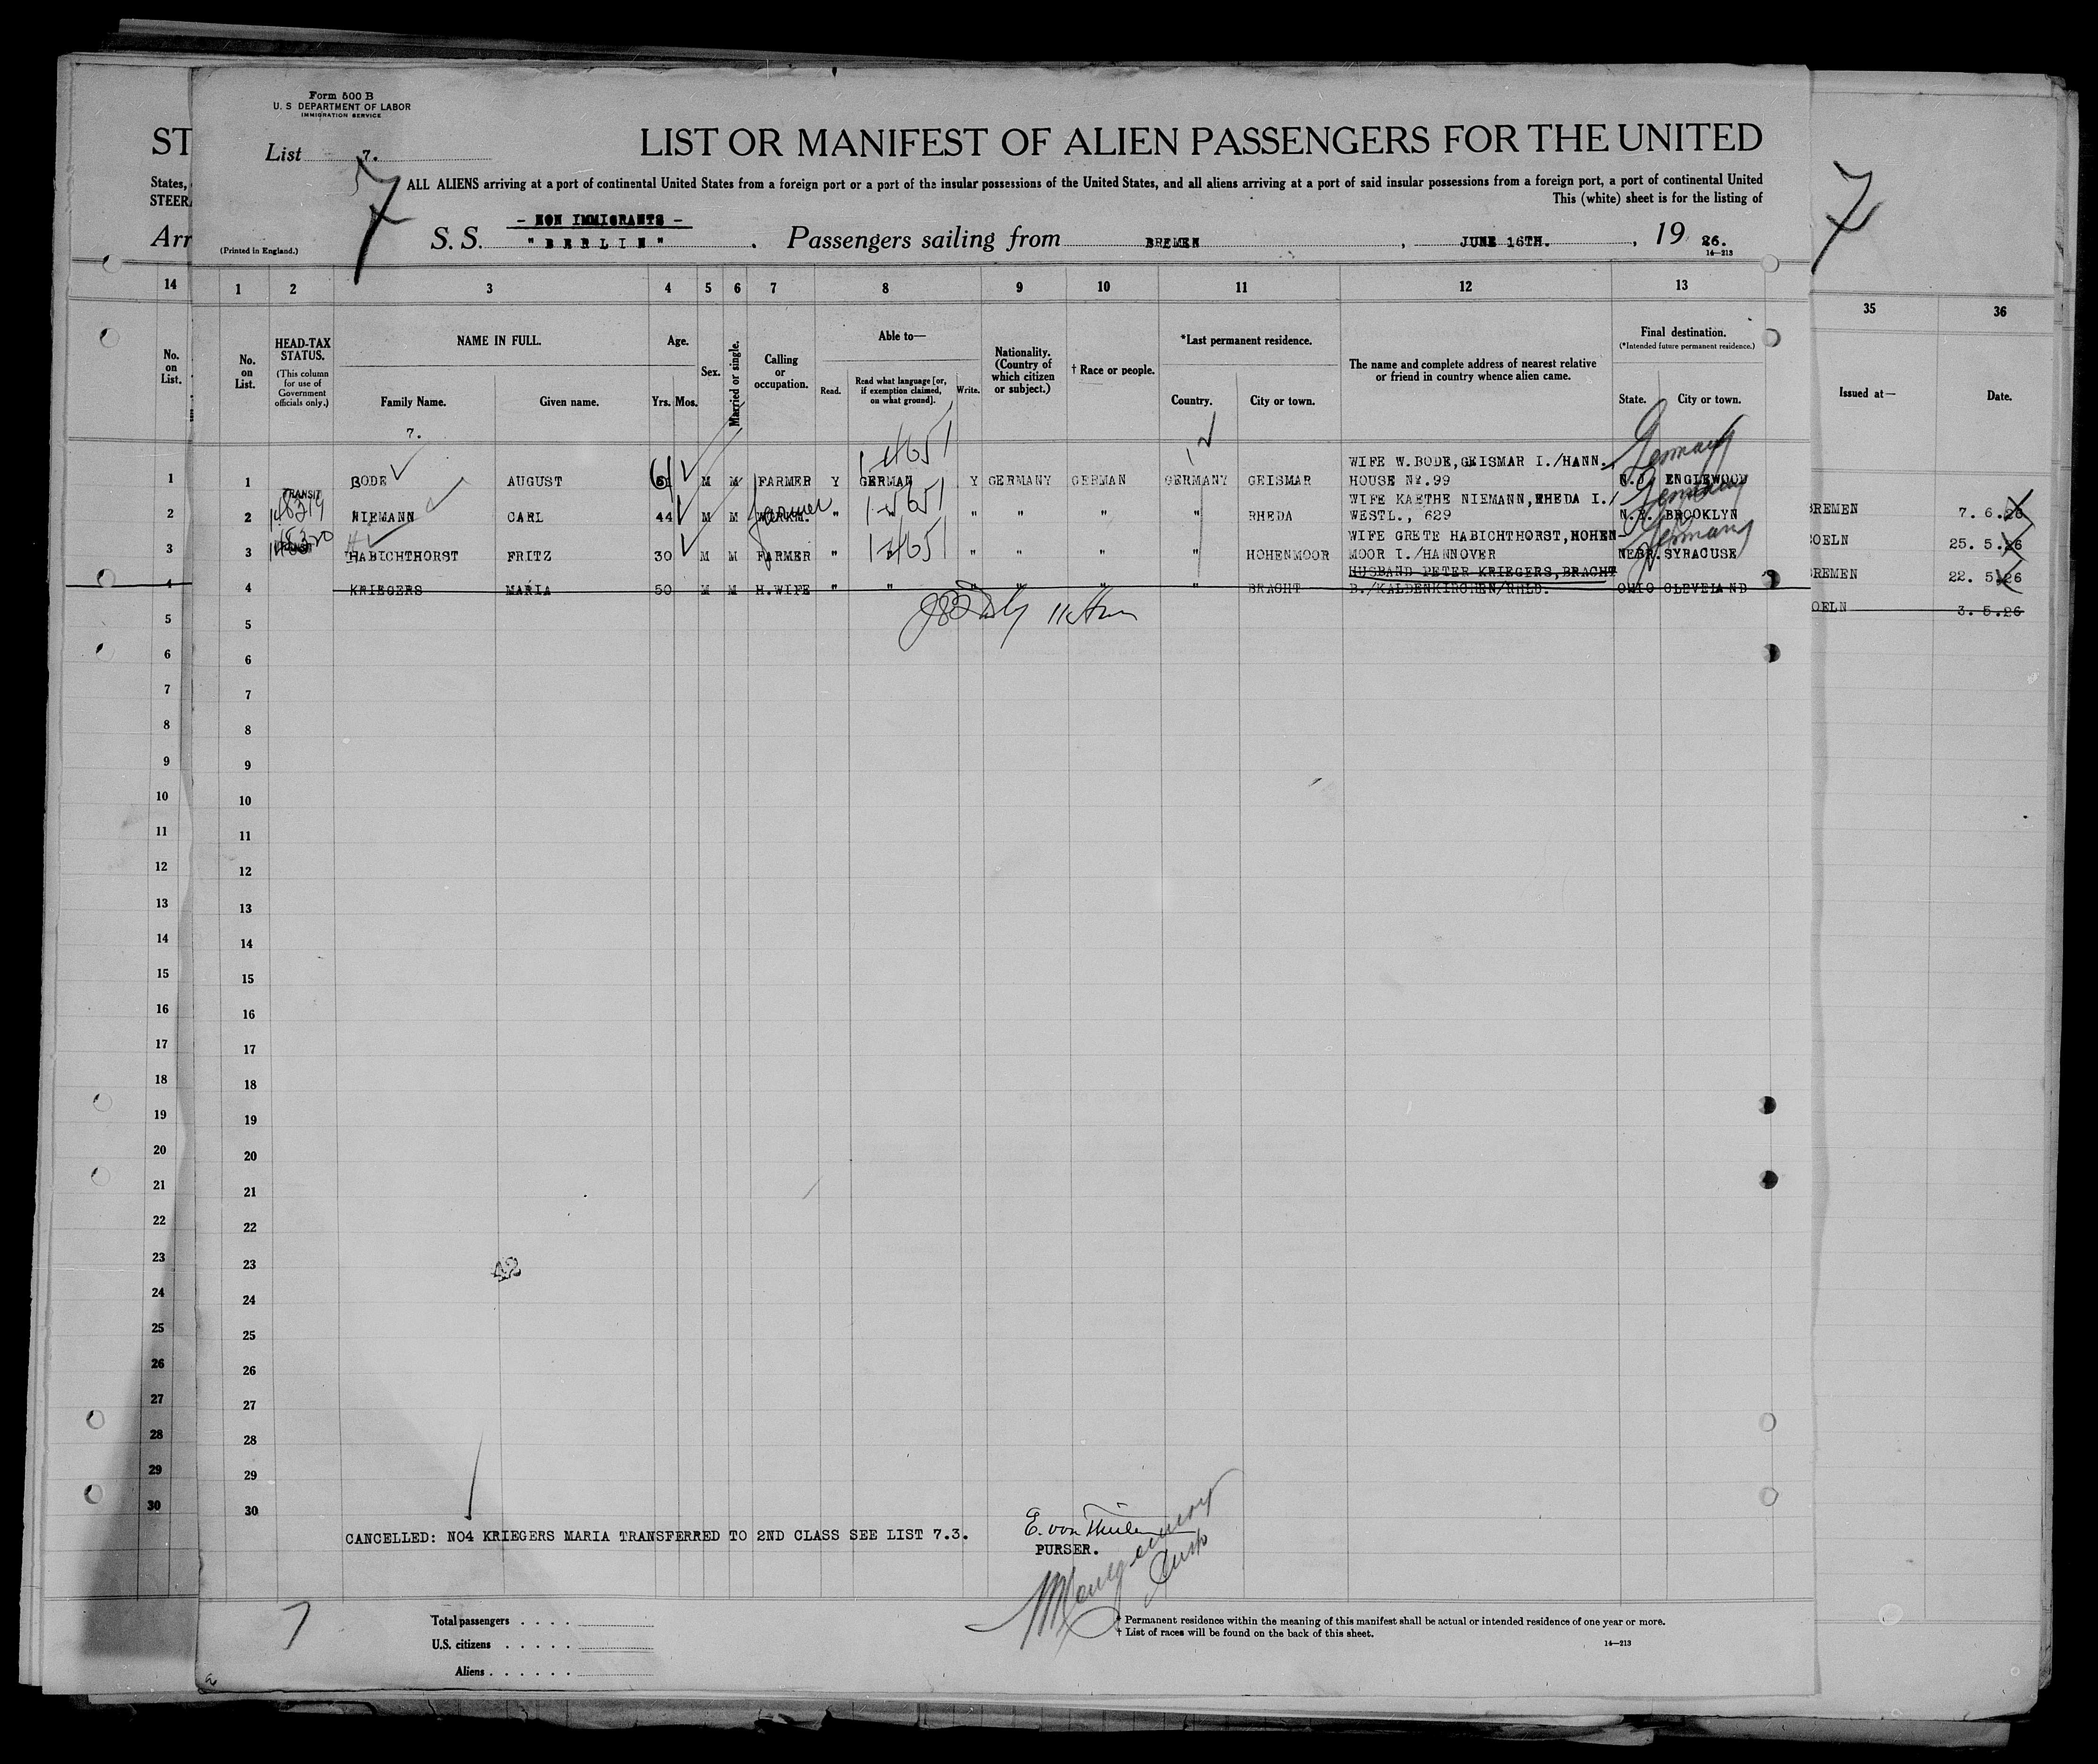 Form 500 B
U. S DEPARTMENT OF LABOR
IMMIGRATION SERVICE
ST
LIST OR MANIFEST OF ALIEN PASSENGERS FOR THE UNITED
List 7.
7
7
States,
STEER
ALL ALIENS arriving at a port of continental United States from a foreign port or a port of the insular possessions of the United States, and all aliens arriving at a port of said insular possessions from a foreign port, a port of continental United
This (white) sheet is for the listing of
- NON IMMIGRANTS -
Arr
(Printed in England.)
S. S. "BERLIN". Passengers sailing from BREMEN, JUNE 16TH., 19 26.
14—213
14 1 2 3 4 5 6 7 8 9 10 11 12 13 35 36
No. on List.
No. on List.
HEAD-TAX STATUS.
(This column for use of Government officials only.)
NAME IN FULL.
Family Name.
Given name.
7.
Age.
Yrs. Mos.
Sex.
Married or single.
Calling or occupation.
Able to—
Read.
Read what language [or, if exemption claimed, on what ground].
Write.
Nationality. (Country of which citizen or subject.)
† Race or people.
*Last permanent residence.
Country.
City or town.
The name and complete address of nearest relative or friend in country whence alien came.
Final destination.
(*Intended future permanent residence.)
State.
City or town.
Issued at—
Date.
WIFE W.BODE,GEISMAR I./HANN.
Germany
1 1 BODE AUGUST 61 M M FARMER Y GERMAN Y GERMANY GERMAN GERMANY GEISMAR HOUSE Nº.99 N.J. ENGLEWOOD
TRANSIT
WIFE KAETHE NIEMANN,RHEDA I./
Germany
2 2 NIEMANN CARL 44 M M WORKM. Farmer " " " " " " RHEDA WESTL., 629 N.Y. BROOKLYN BREMEN 7. 6.26
WIFE GRETE HABICHTHORST,HOHEN-
Germany
3 3 HABICHTHORST FRITZ 30 M M FARMER " " " " " " HOHENMOOR MOOR I./HANNOVER NEBR. SYRACUSE COELN 25. 5.26
HUSBAND PETER KRIEGERS,BRACHT
BREMEN 22. 5.26
4 4 KRIEGERS MARIA 50 M M H.WIFE " " " " " " BRACHT B./KALDENKIRCHEN/RHLD. OHIO CLEVELAND
OELN 3. 5.26
5 5
6 6
7 7
8 8
9 9
10 10
11 11
12 12
13 13
14 14
15 15
16 16
17 17
18 18
19 19
20 20
21 21
22 22
23 23
24 24
25 25
26 26
27 27
28 28
29 29
30 30
CANCELLED: NO4 KRIEGERS MARIA TRANSFERRED TO 2ND CLASS SEE LIST 7.3.
PURSER.
7
Total passengers . . . .
U.S. citizens . . . . .
Aliens . . . . . .
* Permanent residence within the meaning of this manifest shall be actual or intended residence of one year or more.
† List of races will be found on the back of this sheet.
14—213